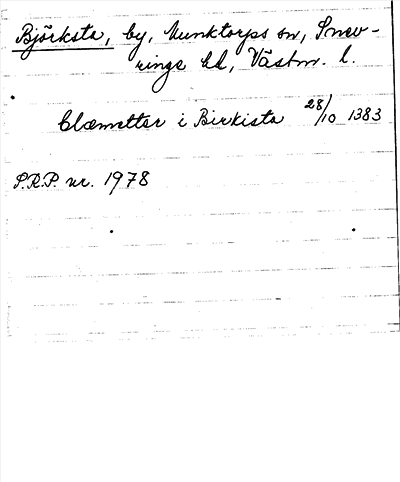 Björksta, by, Munktorps sn, Snev-
ringe hd, Västm. l.
Clæmetter i Birkista 28/10 1383
S.R.P. nr. 1978